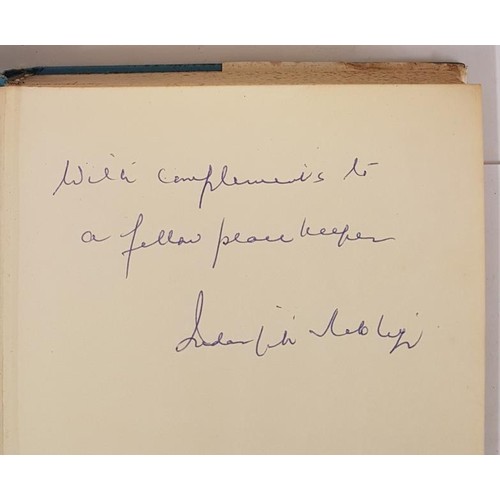 With complements to
a fellow peace keeper
Indar Jit Rikhye